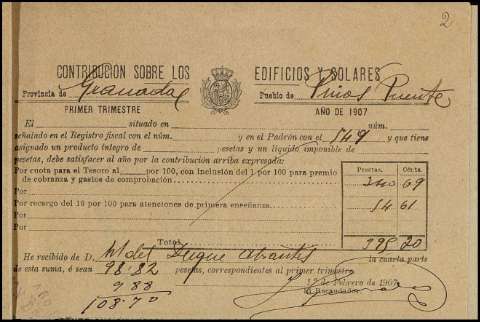 2
CONTRIBUCIÓN SOBRE LOS EDIFICIOS Y SOLARES
Provincia de Granada Pueblo de Pinos Puente
PRIMER TRIMESTRE AÑO DE 1907
El situado en núm.
señalado en el Registro fiscal con el núm. y en el Padrón con el 549 y que tiene
asignado un producto integro de pesetas y un liquido imponible de
pesetas, debe satisfacer al año por la contribución arriba expresada:
Pesetas. Cénts.
Por cuota para el Tesoro al por 100, con inclusión del 1 por 100 para premio
de cobranza y gastos de comprobación 340 69
Por
Por recargo del 16 por 100 para atenciones de primera enseñanza 54 61
Por
Por
Total 395 30
He recibido de D. del Duque Abrantes la cuarta parte
de esta suma, ó sean 98.82 pesetas, correspondientes al primer trimestre
9 88 de Febrero de 1907
108.70 El Recaudador,